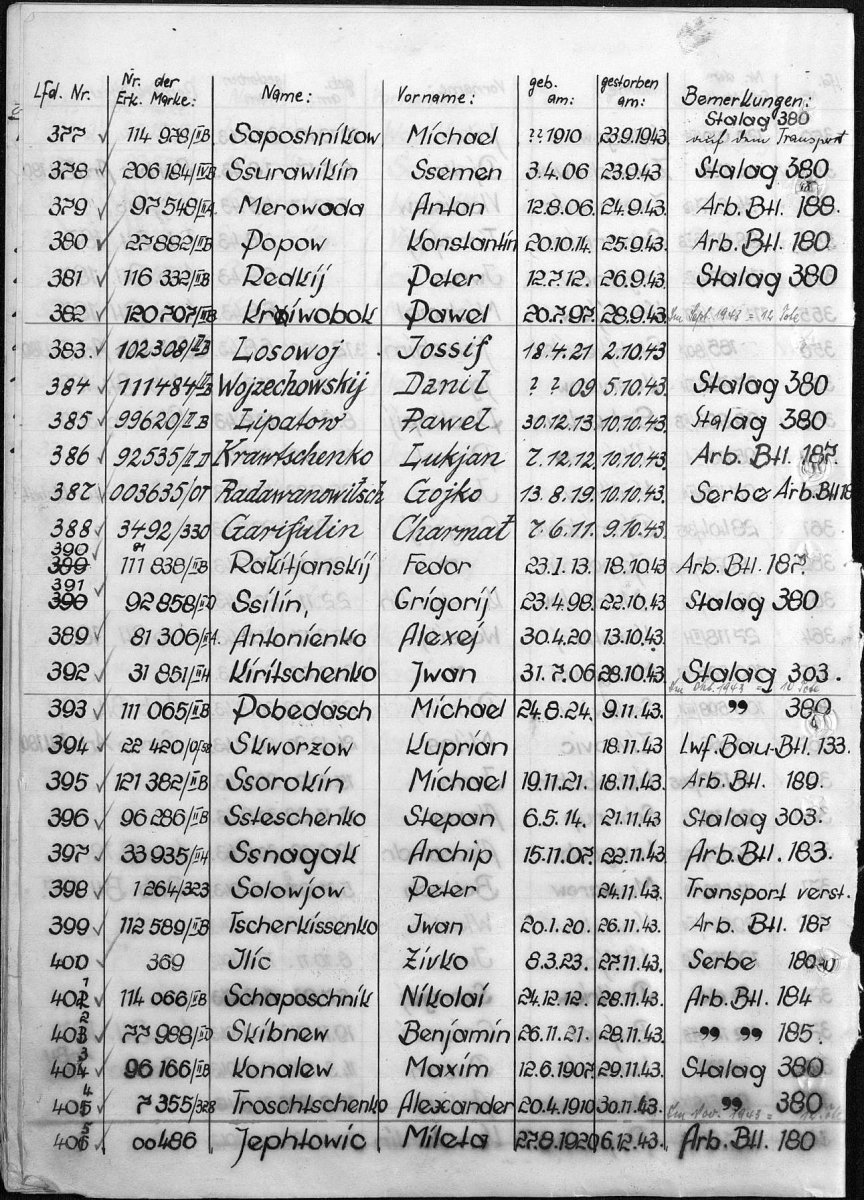 Lfd. Nr. Nr. der Erk. Marke: Name: Vorname: geb. am: gestorben am: Bemerkungen:
Stalag 380
377 114 978/IIB Saposhnikow Michael ??.1910 23.9.1943 auf dem Transport
378 206 194/IVB Ssurawikin Ssemen 3.4.06 23.9.43 Stalag 380
379 97548/IVA Merowoda Anton 12.8.06. 24.9.43. Arb. Btl. 188.
380 27882/IIB Popow Konstantin 20.10.14. 25.9.43. Arb. Btl. 180.
381 116 332/IIB Redkij Peter 12.7.12. 26.9.43 Stalag 380
382 120 707/IIB Kriwobok Pawel 20.7.97. 28.9.43. Im Sept. 1943 = 12 Tote
383. 102308/IIB Losowoj Jossif 18.4.21 2.10.43
384 111484/IIB Wojzechowskij Danil ? ? 09 5.10.43 Stalag 380
385 99620/IIB Lipatow Pawel 30.12.13 10.10.43 Stalag 380
386 92535/IID Krawtschenko Lukjan 7.12.12 10.10.43 Arb. Btl. 187.
387 003635/OT Radawanowitsch Gojko 13.8.19 10.10.43 Serbe Arb. Btl 18
388 3492/330 Garifulin Charmat 7.6.11 9.10.43
390 399 111 838/IIB Rakitjanskij Fedor 23.1.13. 18.10.43 Arb. Btl. 187.
391 390 92 858/IID Ssilin, Grigorij 23.4.98. 22.10.43 Stalag 380
389 81 306/IIA. Antonienko Alexej 30.4.20 13.10.43
392 31 851/IIH Kiritschenko Jwan 31.7.06 28.10.43 Stalag 303.
Im Okt. 1943 = 10 Tote
393 111 065/IIB Pobedasch Michael 24.8.24. 9.11.43. " 380
394 22 420/0/ Skworzow Kuprian 18.11.43 Lwf. Bau-Btl. 133.
395 121 382/IIB Ssorokin Michael 19.11.21. 18.11.43. Arb. Btl. 189.
396 96 286/IIB Ssteschenko Stepan 6.5.14. 21.11.43 Stalag 303.
397 33 935/IIH Ssnagak Archip 15.11.07. 22.11.43. Arb. Btl. 183.
398 1 264/323 Solowjow Peter 24.11.43. Transport verst.
399 112 589/IIB Tscherkissenko Jwan 20.1.20. 26.11.43. Arb. Btl. 187
400 369 Jlic Zivko 8.3.23. 27.11.43. Serbe 180
401 114 066/IIB Schaposchnik Nikolai 24.12.12. 28.11.43. Arb. Btl. 184
402 77 988/IID Skibnew Benjamin 26.11.21. 28.11.43. " " 185.
403 96 166/IIB Konalew Maxim 12.6.1907. 29.11.43. Stalag 380
404 7 355/328 Troschtschenko Alexander 20.4.1910 30.11.43. " 380
Im Nov. 1943 =
405 00486 Jephtowic Mileta 27.8.1920 6.12.43. Arb. Btl. 180